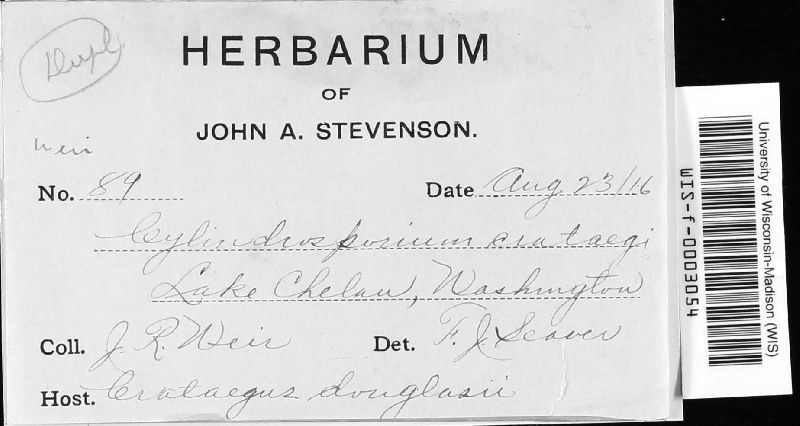 Dupl
HERBARIUM
OF
JOHN A. STEVENSON.
Weir
No. 89 Date Aug 23/16
Cylindrosporium crataegi
Lake Chelan, Washington
Coll. J. R. Weir Det. F. J. Seaver
Host. Crataegus douglasii
University of Wisconsin-Madison (WIS)
WIS-f-0003054